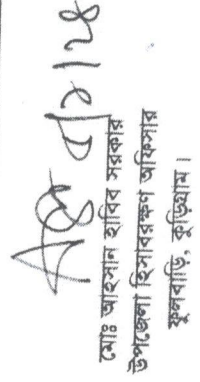 মোঃ আহসান হাবিব সরকার
উপজেলা হিসাবরক্ষণ অফিসার
ফুলবাড়ি, কুড়িগ্রাম।